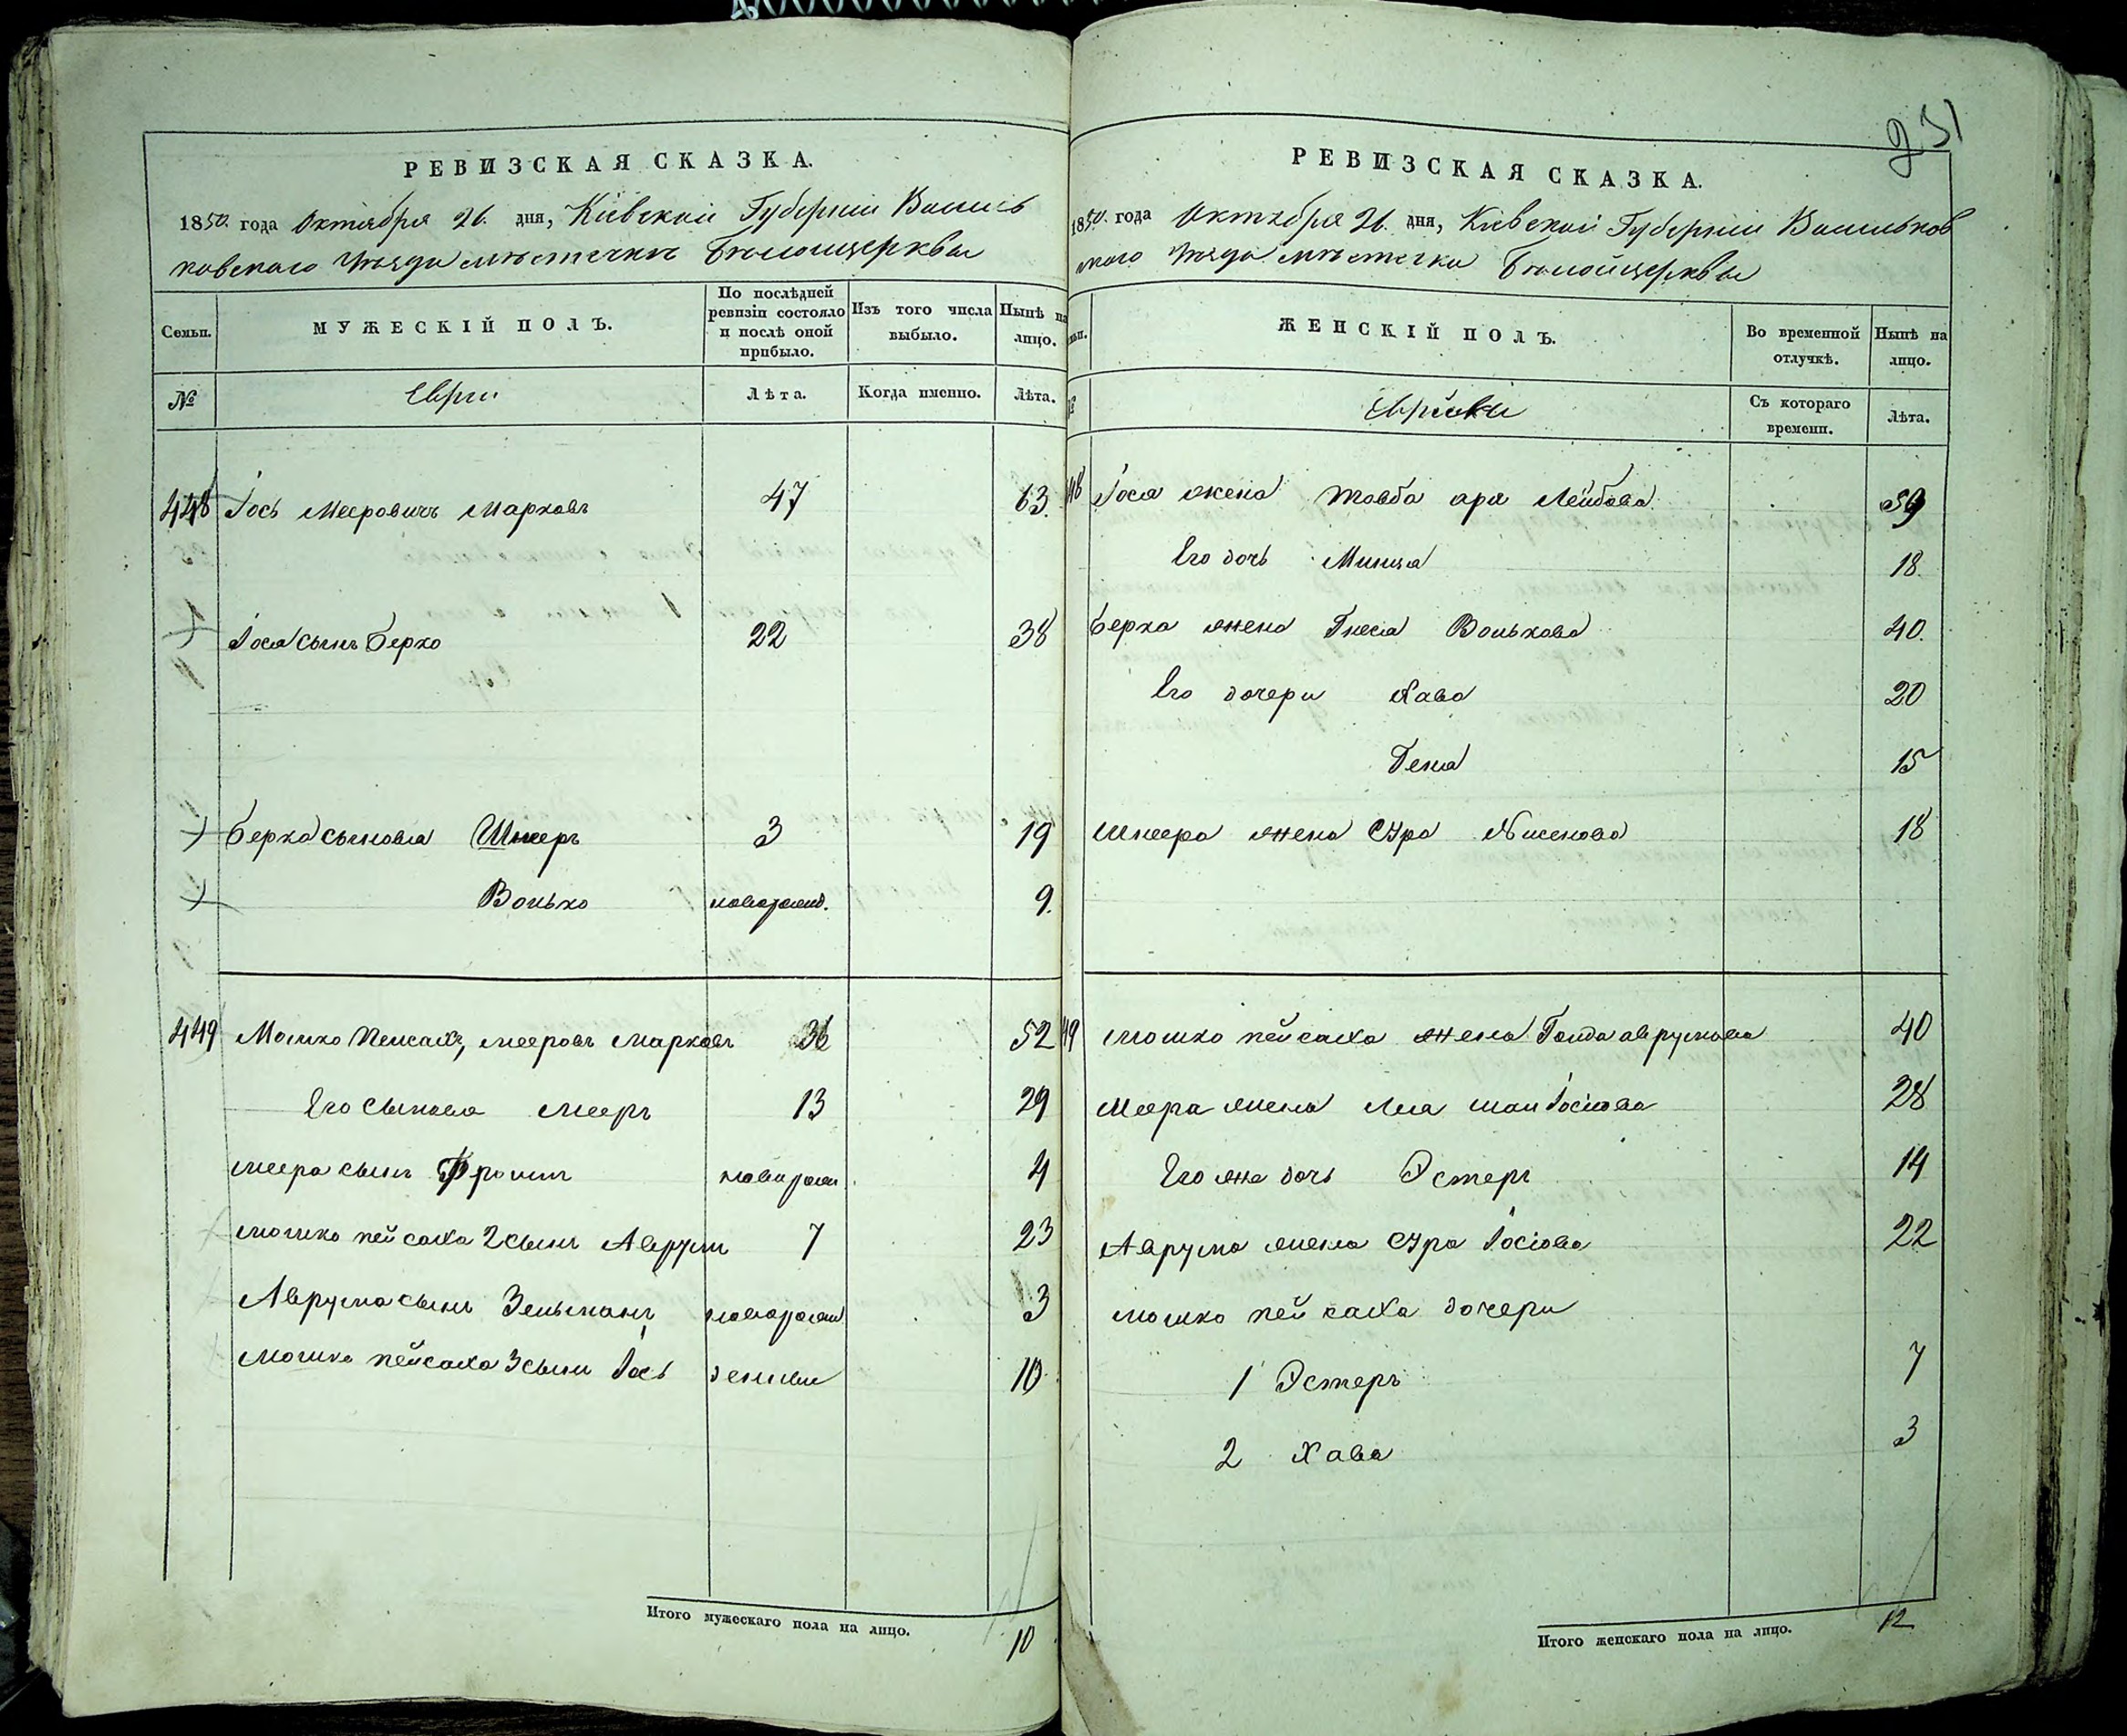 231
РЕВИЗСКАЯ СКАЗКА.
1850. года Октября 26. дня, Кіевской Губерніи Василь
ковскаго Уезда местечка Белоицеркви
Семьи.
МУЖЕСКІЙ ПОЛЪ.
По послѣдней ревизіи состояло и послѣ оной прибыло.
Изъ того числа выбыло.
Нынѣ на лицо.
№
Евреи
Лѣта.
Когда именно.
Лѣта.
448 Іось Мееровичъ Марковъ 47 63.
Іося сынъ Берко 22 38
Берка сыновья Шнееръ 3 19
Волько новорожд. 9.
449 Мошко Пейсахъ, мееровъ Марковъ 36 52
Его сыновья Мееръ 13 29
меера сынъ Фроимъ новорож. 4
мошко пейсаха 2 сынъ Аврумъ 7 23
Аврума сынъ Зельманъ новорожд 3
мошко пейсаха 3 сынъ Іось 10
Итого мужескаго пола на лицо. 10
РЕВИЗСКАЯ СКАЗКА.
1850. года Октября 26. дня, Кіевской Губерніи Васильков
скаго Уезда местечка Белойцеркви
ЖЕНСКІЙ ПОЛЪ.
Во временной отлучкѣ.
Нынѣ на лицо.
Еврейки
Съ котораго времени.
Лѣта.
48 Іося жена Товба Лейбова 59
Его дочь Минця 18.
Берка жена Гнеся Волькова 40.
Его дочери Хава 20
Геня 15
Шнеера жена Сура 18
49 мошко пейсаха жена Голда аврумова 40
Меера жена Лея Іосіова 28
Его же дочь Эстеръ 14
Аврума жена Сура Іосіова 22
мошко пейсаха дочери
1 Эстеръ 7
2 Хава 3
Итого женскаго пола на лицо. 12